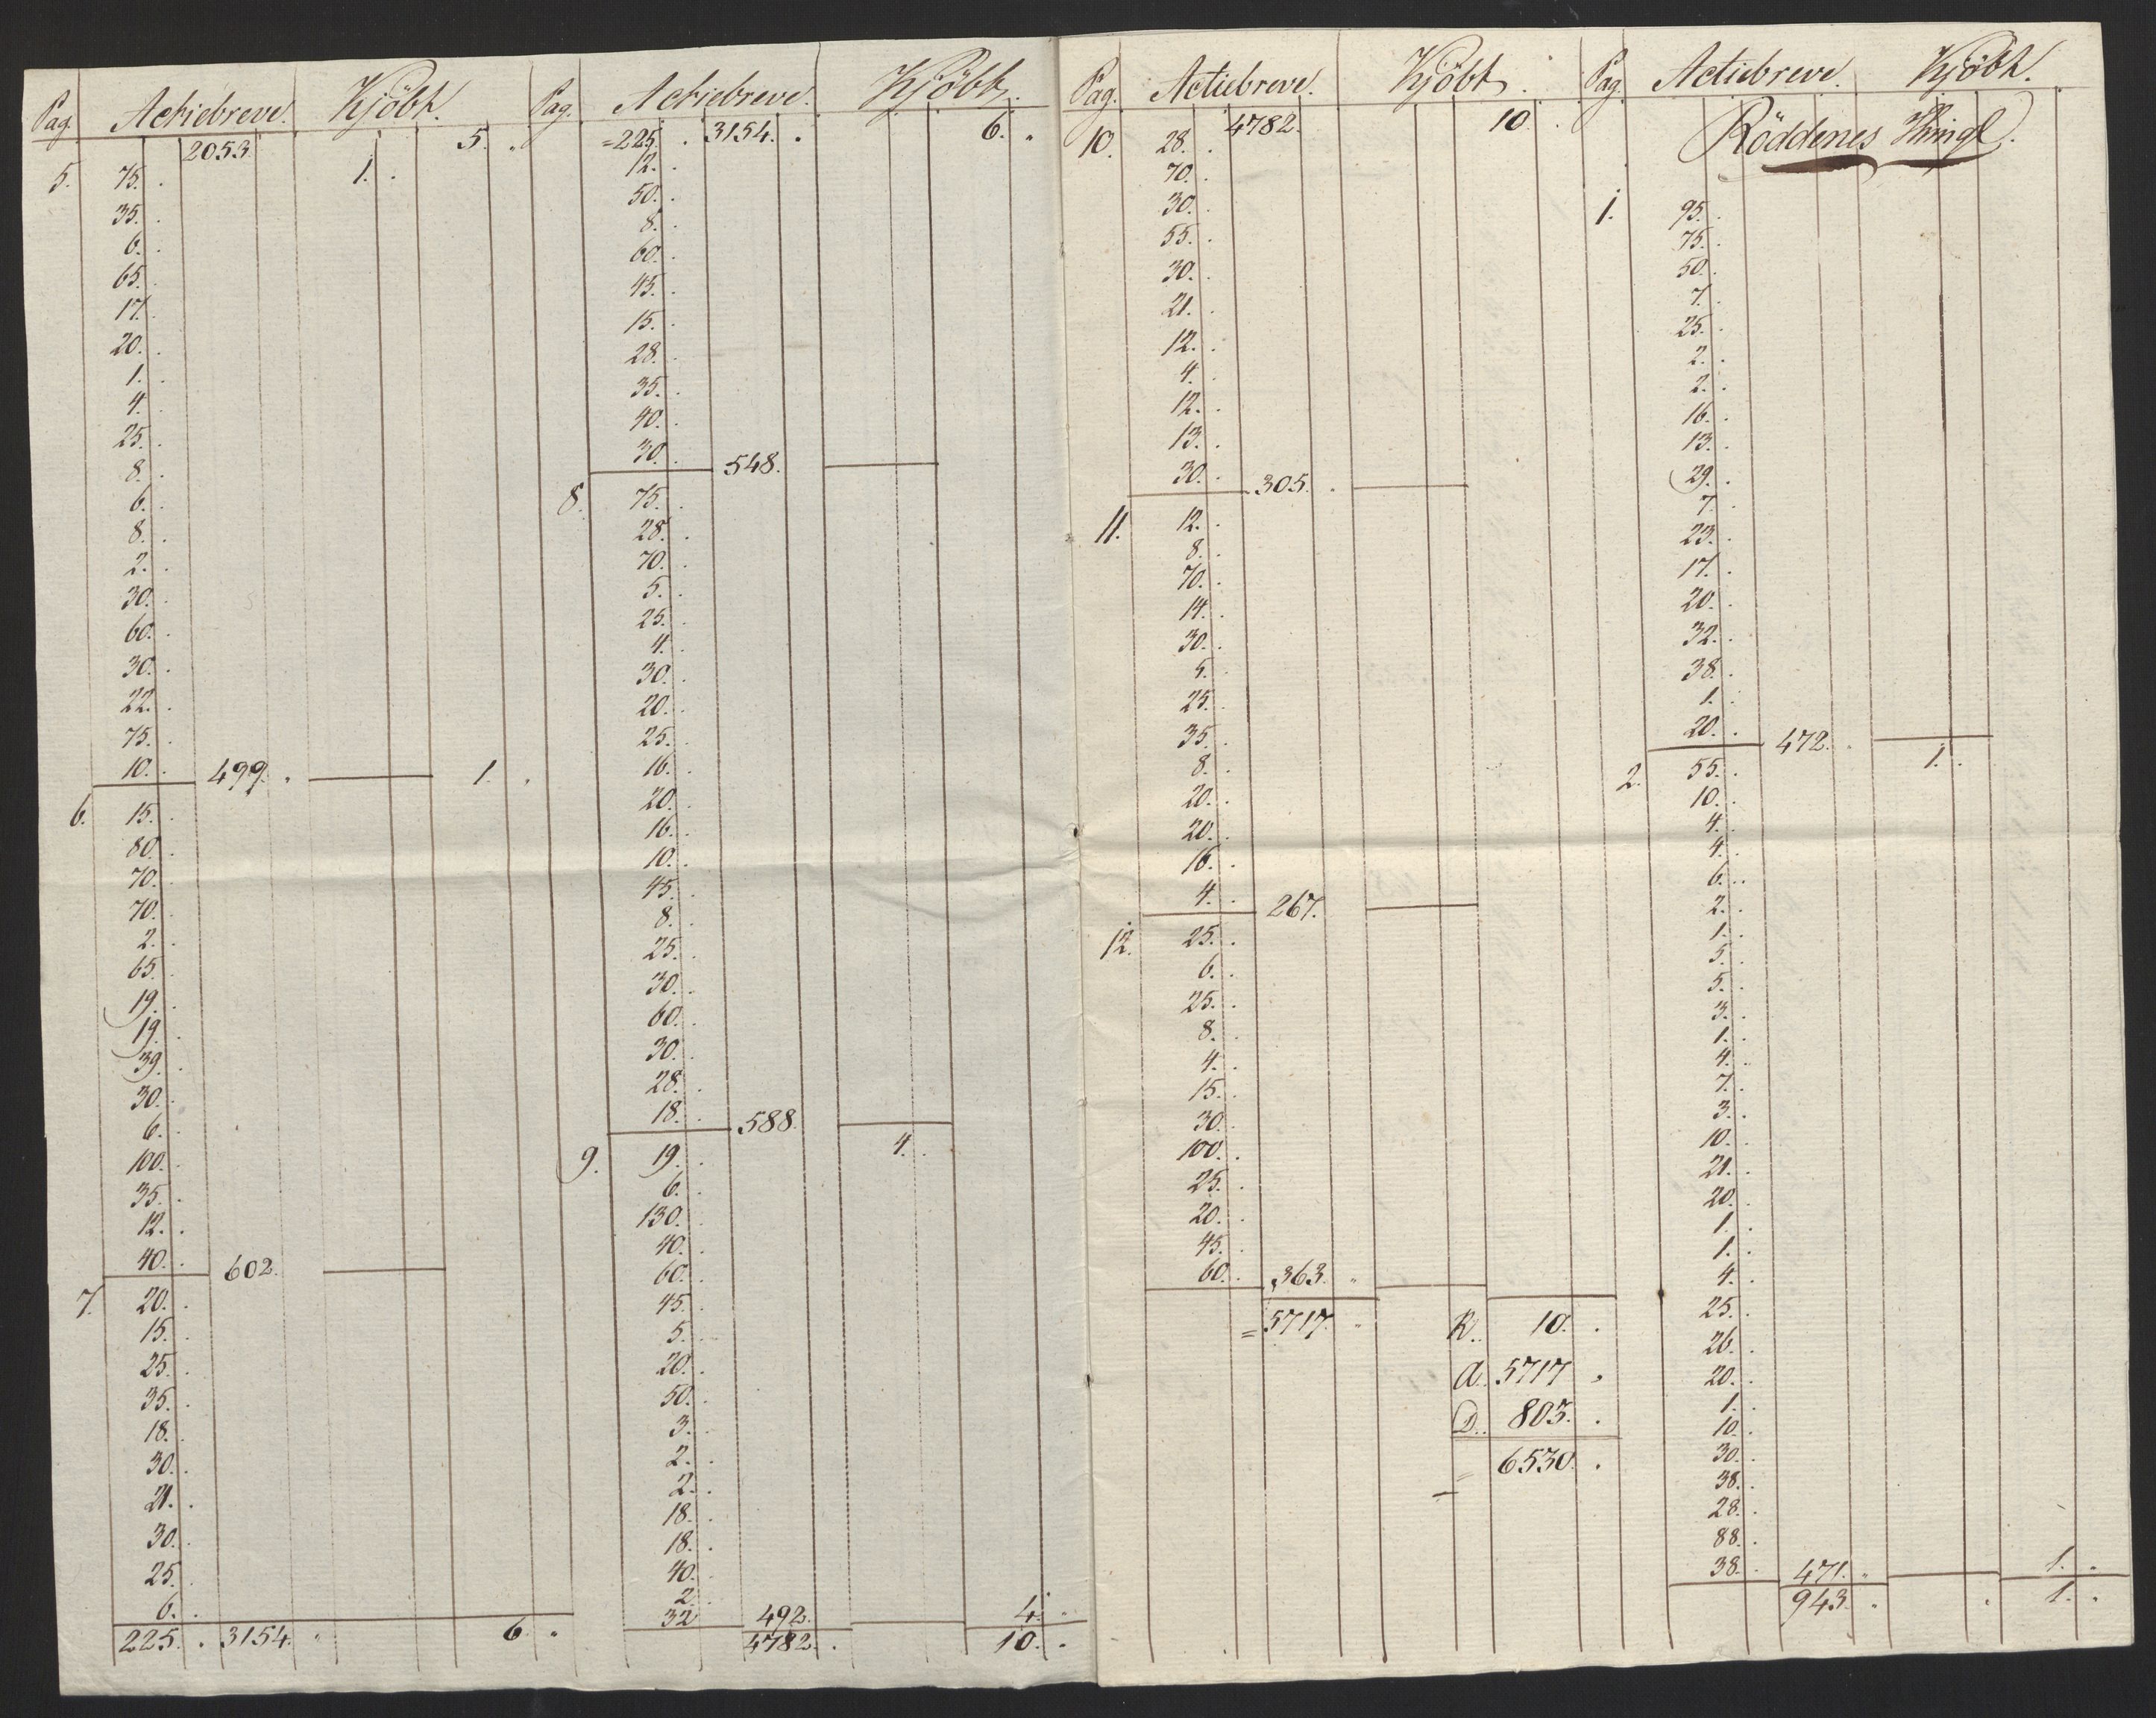 Pag. Actiebreve. Kjöbt.
2053. 5.
5. 75. 1.
35.
6.
65.
17.
20.
1.
4.
25.
8.
6.
8.
2.
30.
60.
30.
22.
75.
10. 499. 1.
6. 15.
80.
70.
70.
2.
65.
19.
19.
39.
30.
6.
100.
35.
12.
40. 602.
7. 20.
15.
25.
35.
18.
30.
21.
30.
25.
6.
225. 3154. 6.
Pag. Actiebreve. Kjöbt.
=225. 3154. 6.
12.
50.
8.
60.
45.
15.
28.
35.
40.
30. 548.
8. 75.
28.
70.
5.
25.
4.
30.
20.
25.
16.
20.
16.
10.
45.
8.
25.
30.
60.
30.
28.
18. 588.
9. 19. 4.
6.
130.
40.
60.
45.
5.
20.
50.
3.
2.
2.
18.
18.
40.
2.
32 492. 4.
4782. 10.
Pag. Actiebreve. Kjöbt.
10. 28. 4782. 10.
70.
30.
55.
30.
21.
12.
4.
12.
13.
30. 305.
11. 12.
8.
70.
14.
30.
5.
25.
35.
8.
20.
20.
16.
4. 267.
12. 25.
6.
25.
8.
4.
15.
30.
100.
25.
20.
45.
60. 363.
= 5717. K. 10.
A. 5717
D. 803.
= 6530.
Pag. Actiebreve. Kjöbt.
Röddenes Thingl.
1. 95.
75.
50.
7.
25.
2.
2.
16.
13.
29.
7.
23.
17.
20.
32.
38.
1.
20. 472.
2. 55. 1.
10.
4.
4.
6.
2.
1.
5.
5.
3.
1.
4.
7.
3.
10.
21.
20.
1.
1.
4.
25.
26.
20.
1.
10.
30.
38.
28.
88.
38. 471. 1.
943. 1.